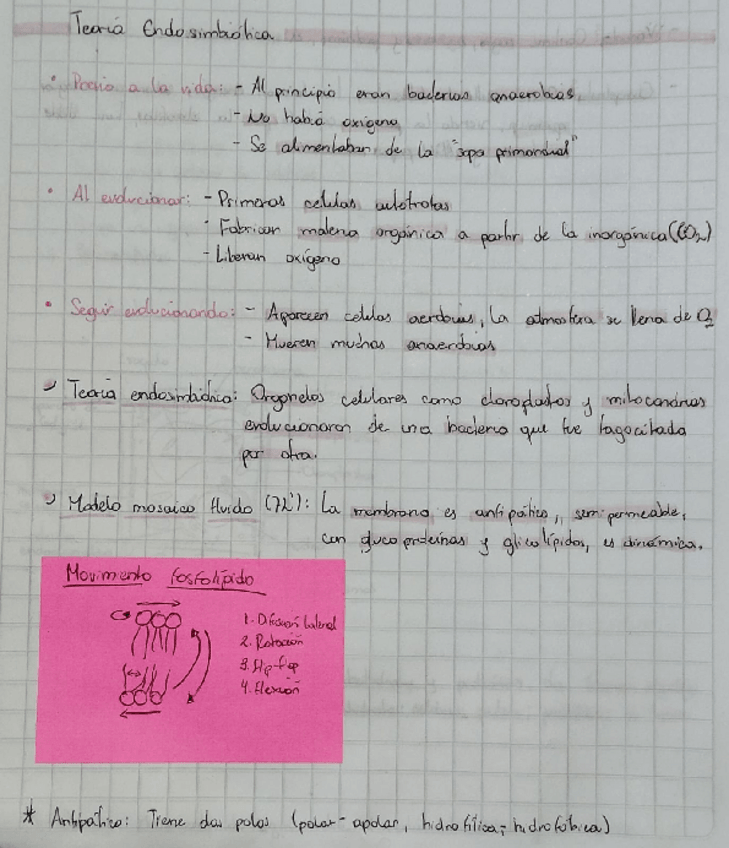 Teoría Endosimbiótica
• Previo a la vida: - Al principio eran bacterias anaerobias
- No había oxígeno
- Se alimentaban de la "sopa primordial"
• Al evolucionar: - Primeras celulas autótrofas
- Fabrican materia orgánica a partir de la inorgánica (CO2)
- Liberan oxígeno
• Seguir evolucionando: - Aparecen celulas aerobias, La atmosfera se llena de O2
- Mueren muchas anaerobias
Teoría endosimbiótica: Organelos celulares como cloroplastos y mitocondrias
evolucionaron de una bacteria que fue fagocitada
por otra.
Modelo mosaico fluido (72'): La membrana es antipática, semipermeable,
con glucoproteínas y glicolípidos, es dinámica.
Movimento fosfolípido
1. Difusión lateral
2. Rotación
3. Flip-flop
4. Flexión
* Antipático: Tiene dos polos (polar - apolar, hidrofílica; hidrofóbica)